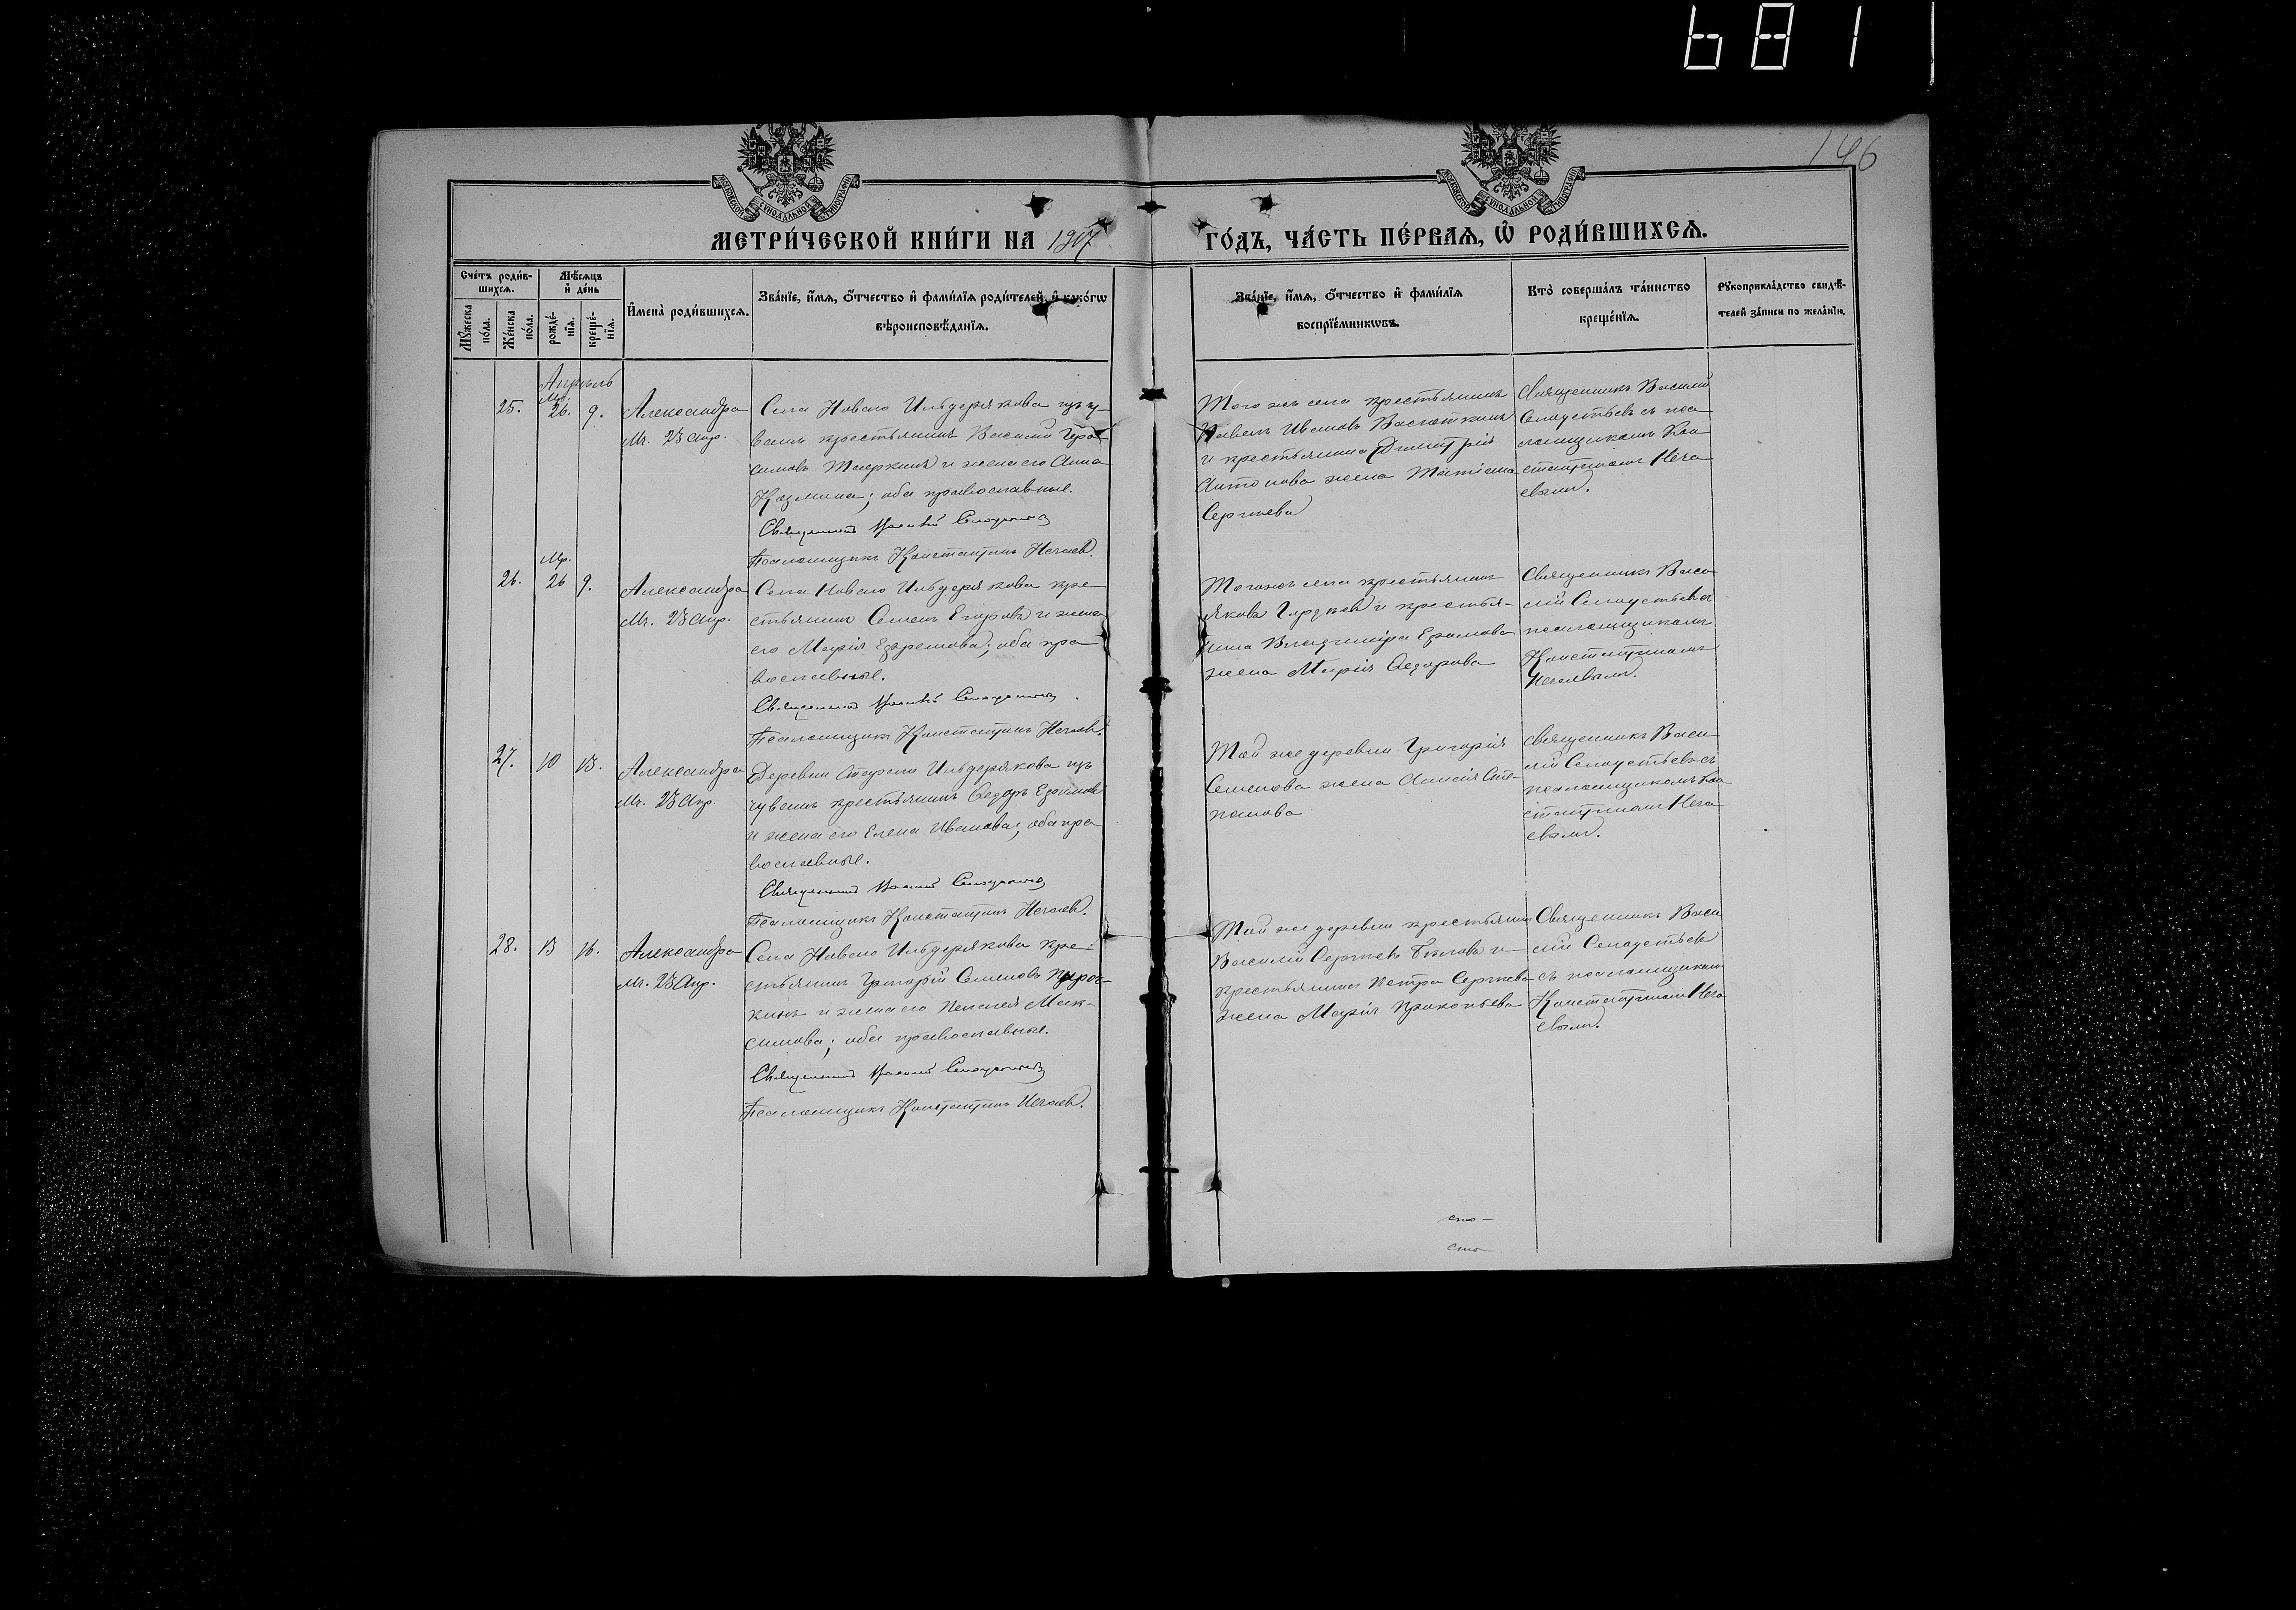 681
146
МОСКОВСКОЙ СѴНОДАЛЬНОЙ ТИПОГРАФІИ
МОСКОВСКОЙ СѴНОДАЛЬНОЙ ТИПОГРАФІИ
МЕТРИ́ЧЕСКОЙ КНИ́ГИ НА 1907
ГО́ДЪ, ЧА́СТЬ ПЕ́РВАѦ, Ѡ҆ РОДИ́ВШИХСѦ.
Сче́тъ роди́в-
шихсѧ.
Мꙋ́жеска по́ла.
Же́нска по́ла.
Мѣ́сѧцъ
и҆ де́нь
рожде́-
нїѧ.
креще́-
нїѧ.
И҆мена̀ роди́вшихсѧ.
Зва́нїе, и҆́мѧ, ѻ҆́тчество и҆ фами́лїѧ роди́телей, и҆ како́гѡ
вѣроисповѣ́данїѧ.
Зва́нїе, и҆́мѧ, ѻ҆́тчество и҆ фами́лїѧ
воспрїе́мникѡвъ.
Кто̀ соверша́лъ та́инство
креще́нїѧ.
Рꙋкоприкла́дство свидѣ́-
телей за́писи по жела́нїю.
Апрѣль
Мр.
25. 26. 9.
Александра
Мч. 23 Апр.
Села Новаго Ильдерякова изъ чу-
вашъ крестьянинъ Василій Гера-
симовъ и жена его Анна
Козмина; оба православные.
Священникъ Василій
Псаломщикъ Константинъ Нечаев.
Того же села крестьянинъ
Павелъ Ивановъ Васюткинъ
и крестьянина Димитрія
Антонова жена Татіана
Сергѣева
Священникъ Василій
съ пса-
ломщикомъ Кон
стантиномъ Неча
евымъ.
Мр.
26. 26 9.
Александра
Мч. 23 Апр.
Села Новаго Ильдерякова кре-
стьянинъ Семенъ Егоровъ и жена
его Марія Ефремова; оба пра
вославные.
Священникъ Василій
Псаломщикъ Константинъ Нечаев.
Того же села крестьянинъ
Яковъ и крестья-
нина Владиміра Ефимова
жена Марія Ѳедорова
Священникъ Васи
лій
псаломщикомъ
Константиномъ
Нечаевымъ.
27. 10 13.
Александра
Мч. 23 Апр.
Деревни Стараго Ильдерякова изъ
чувашъ крестьянинъ Ѳедоръ Ефимовъ
и жена его Елена Иванова; оба пра
вославные.
Священникъ Василій
Псаломщикъ Константинъ Нечаев.
Той же деревни Григорія
Семенова жена Анисія Сте-
панова
Священникъ Васи
лій
псаломщикомъ Кон
стантиномъ Неча
евымъ.
28. 13 16.
Александра
Мч. 23 Апр.
Села Новаго Ильдерякова кре-
стьянинъ Григорій Семеновъ
и жена его Пелагея Мак-
симова; оба православные.
Священникъ Василій
Псаломщикъ Константинъ Нечаев.
Той же деревни крестьянин
Василій Сергѣевъ Бѣловъ и
крестьянина Петра Сергѣева
жена Марія Прокопьева
Священникъ Васи
лій
съ псаломщикомъ
Константиномъ Неча
евымъ.